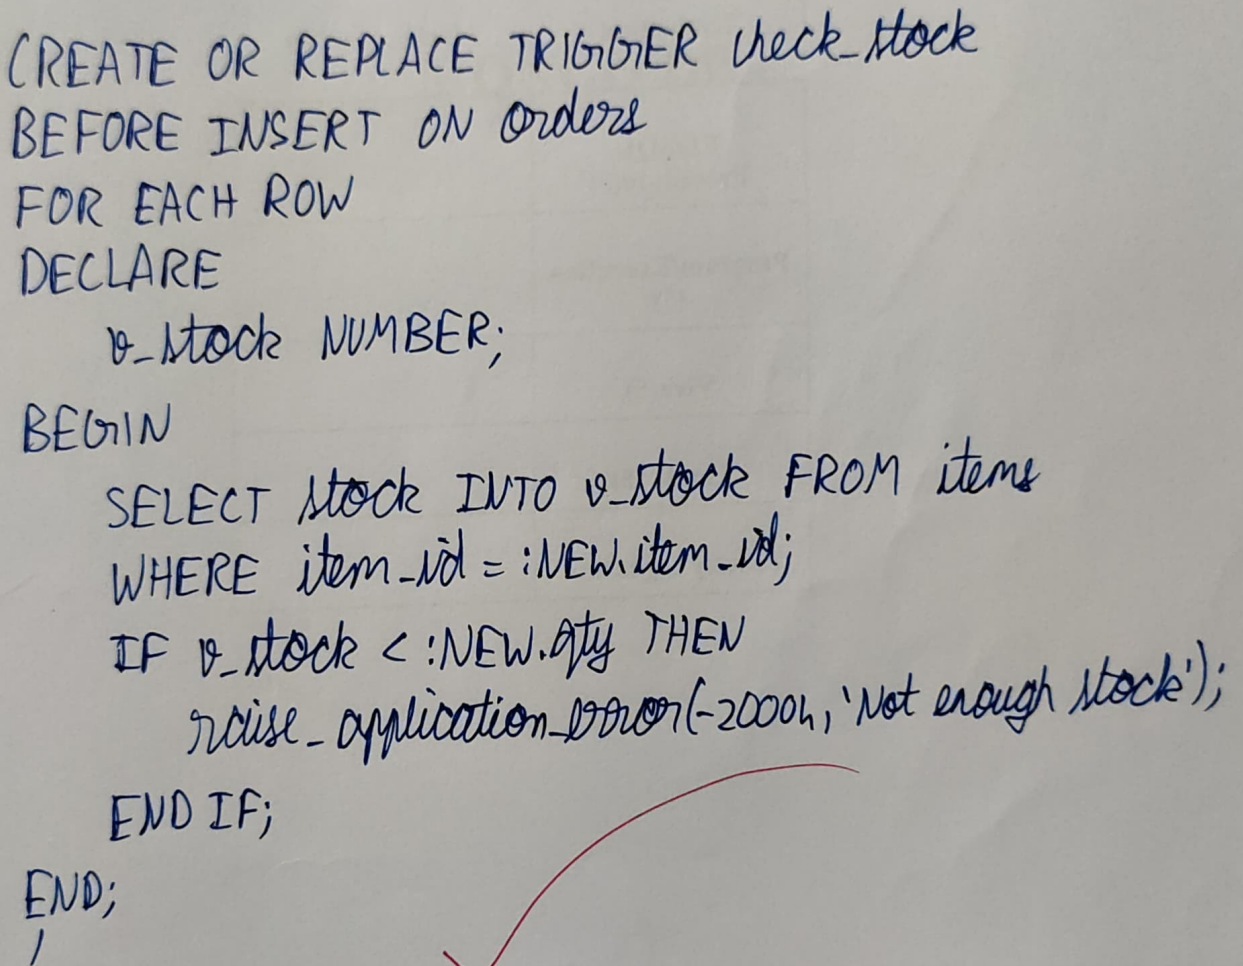 CREATE OR REPLACE TRIGGER check_stock
BEFORE INSERT ON orders
FOR EACH ROW
DECLARE
v_stock NUMBER;
BEGIN
SELECT stock INTO v_stock FROM items
WHERE item_id = :NEW.item_id;
IF v_stock < :NEW.qty THEN
raise_application_error(-20004, 'Not enough stock');
END IF;
END;
/